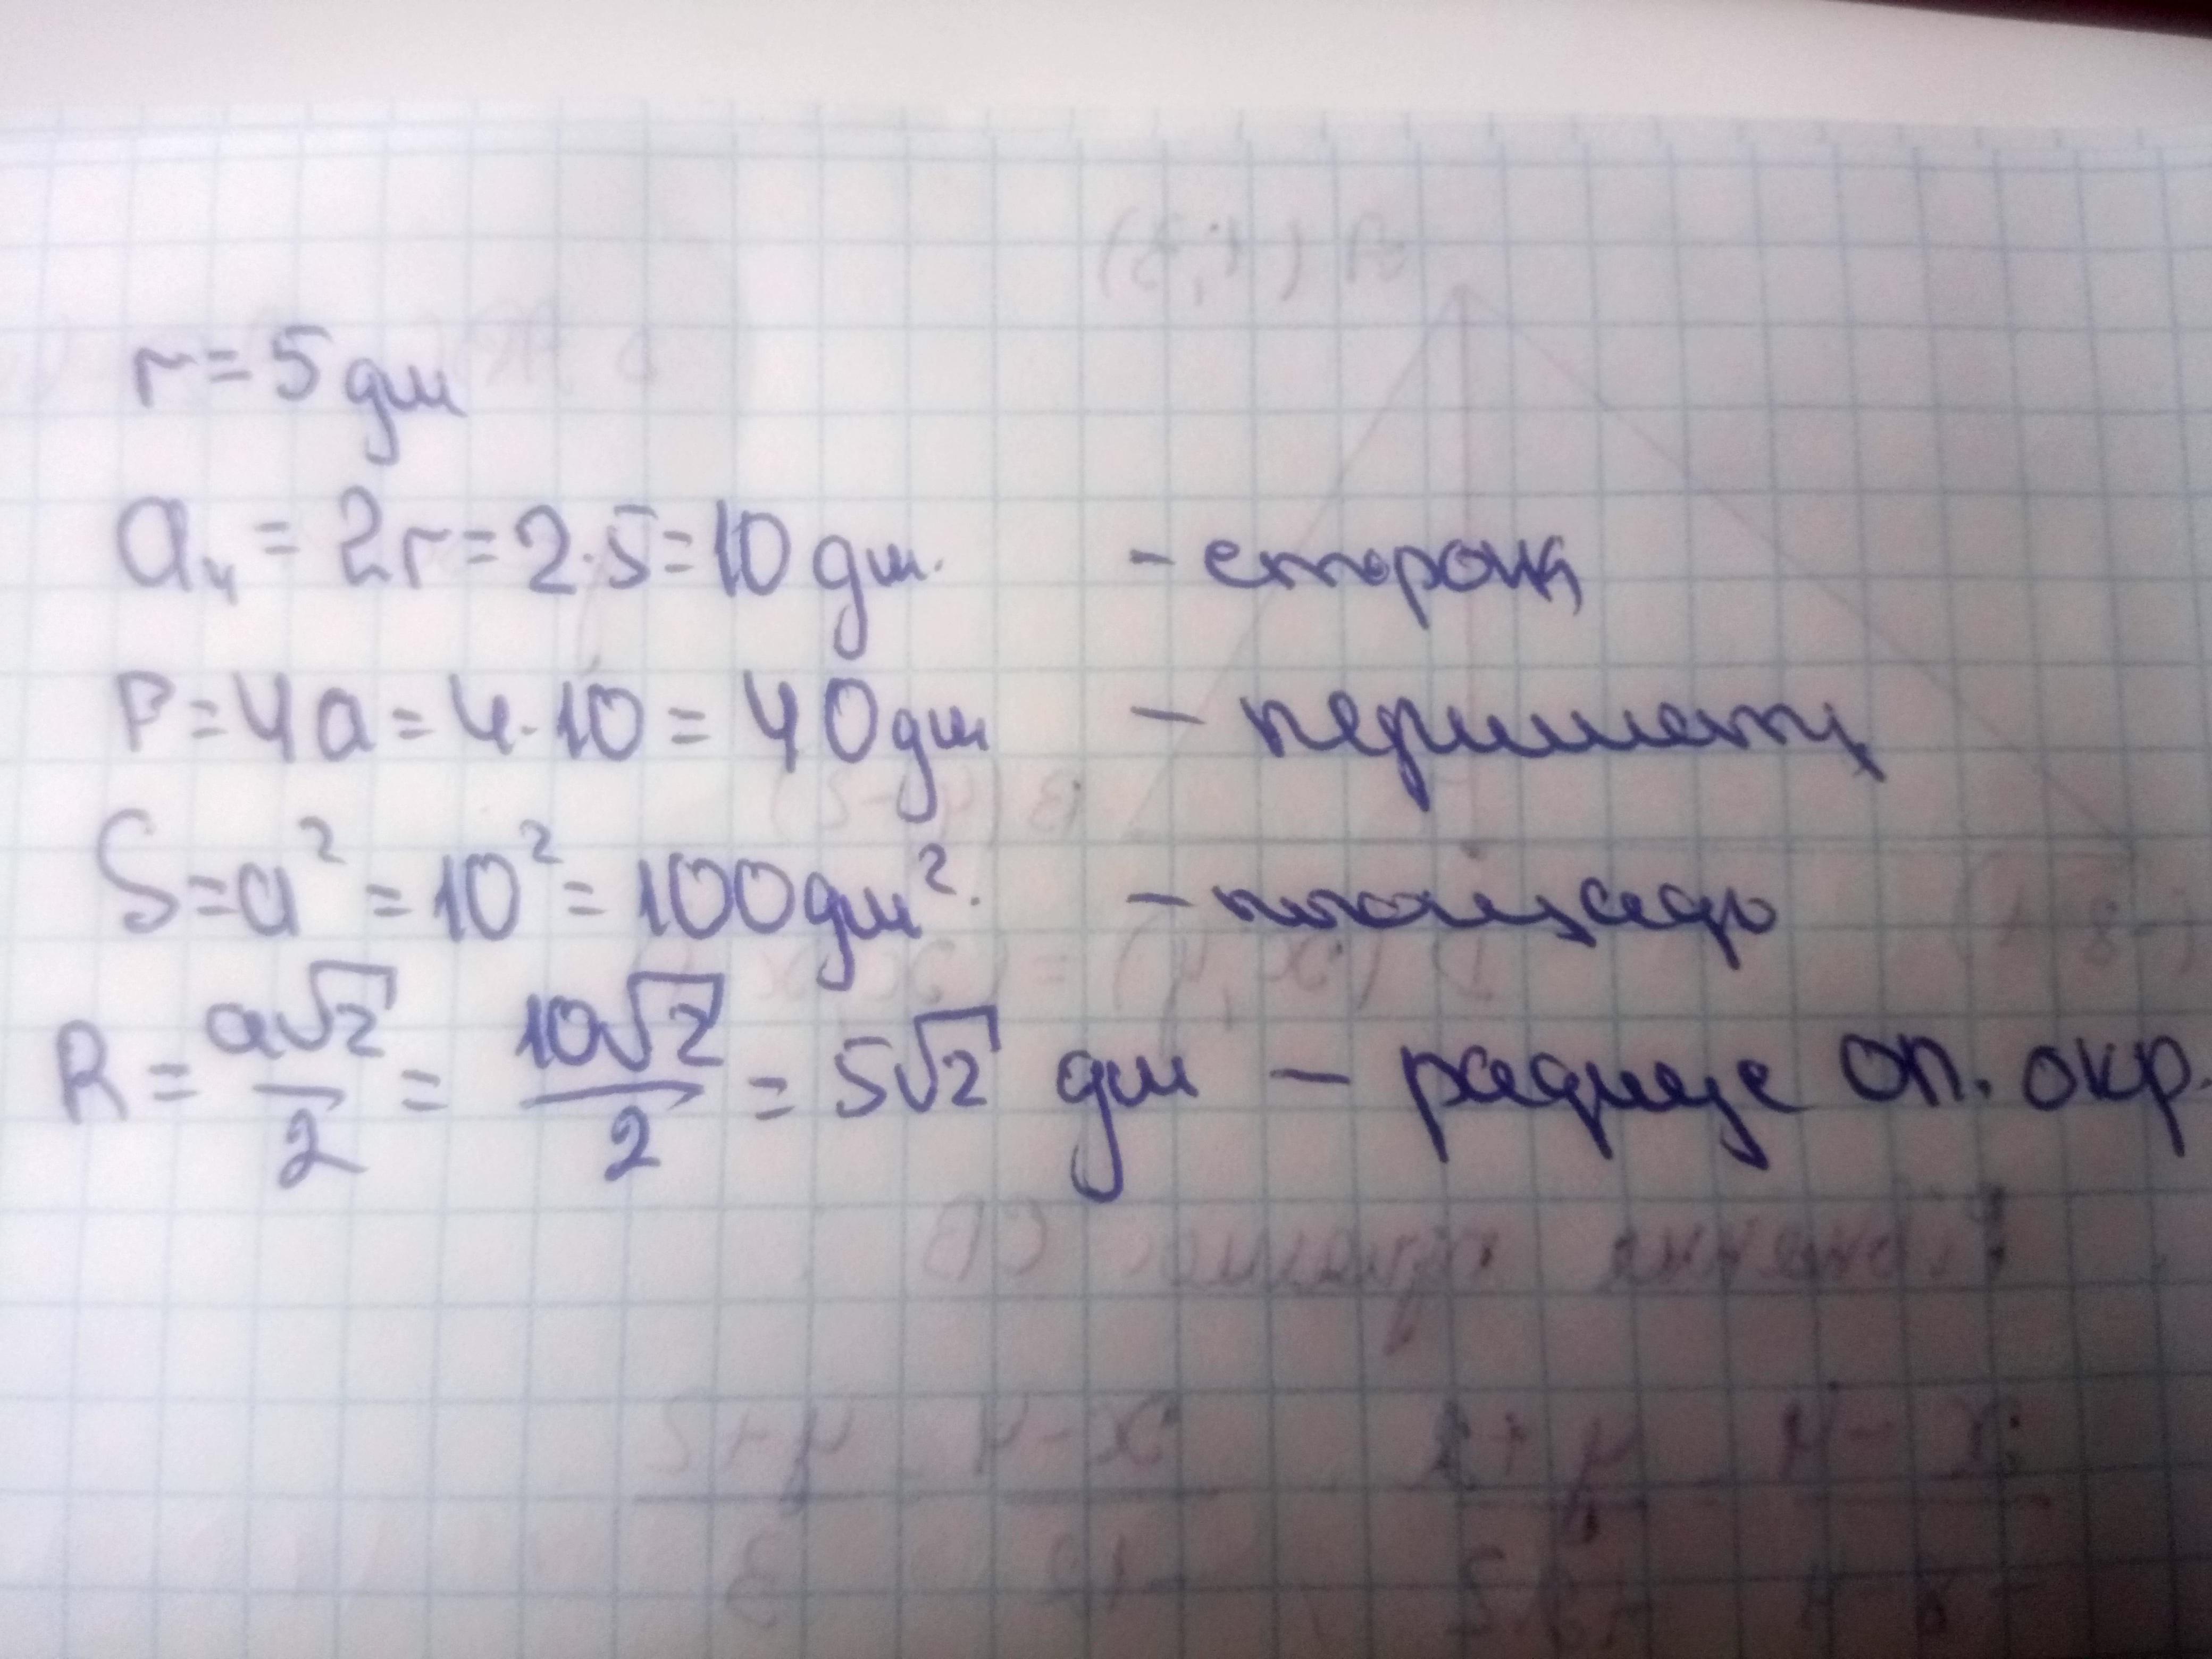 r = 5 дм
a₄ = 2r = 2·5 = 10 дм. - сторона
P = 4a = 4·10 = 40 дм - периметр
S = a² = 10² = 100 дм². - площадь
R = a√2/2 = 10√2/2 = 5√2 дм - радиус оп. окр.